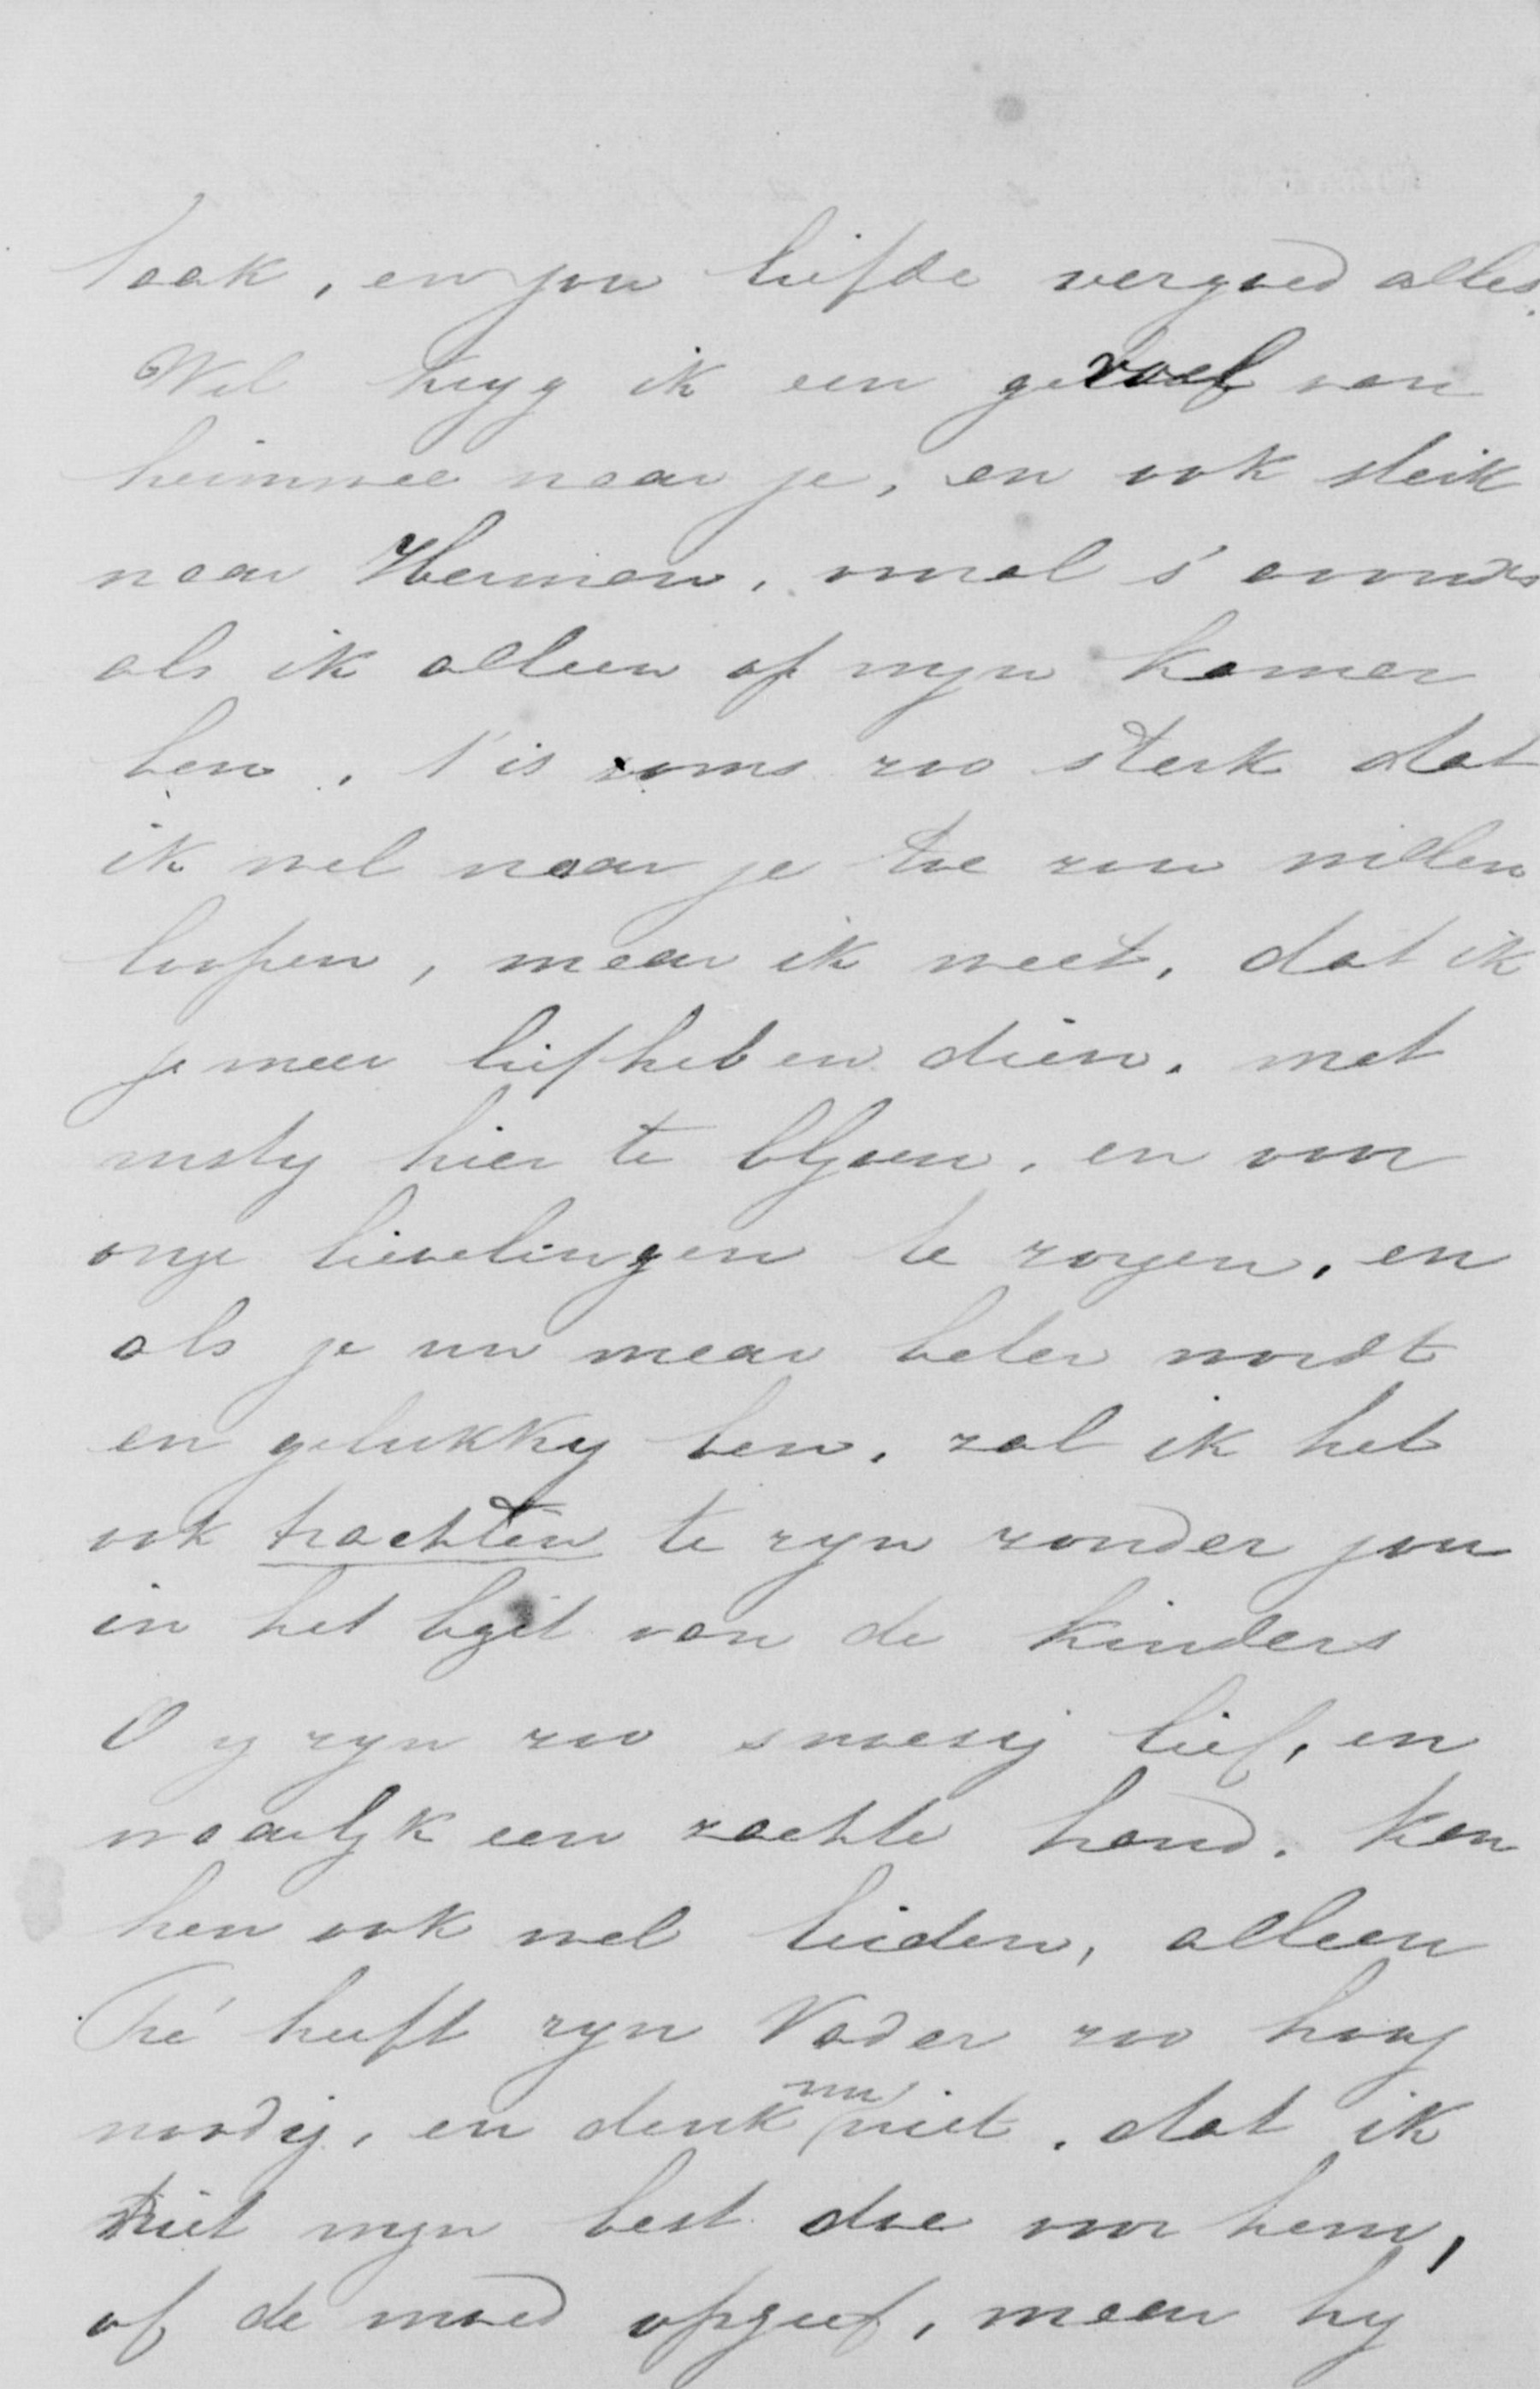 taak, en jou liefde vergoed alles.
Wel kryg ik een gevoel van
heimwee naar je, en ook sterk
naar Herman, vooral s' avonds
als ik alleen op myn kamer
ben. t'is soms zoo sterk dat
ik wel naar je toe zou willen
loopen, maar ik weet, dat ik
je meer liefheb en dien, met
rustig hier te blyven, en voor
onze lievelingen te zorgen, en
als je nu maar beter wordt
en gelukkig ben, zal ik het
ook trachten te zyn zonder jou
in het bezit van de kinders
O zy zyn zoo snoezig lief, en
waarlyk een zachte hand, kan
hen ook wel leiden, alleen
heeft zyn Vader zoo hoog
noodig, en denk nu niet, dat ik
niet myn best doe voor hem,
of de moed opgeef, maar hy